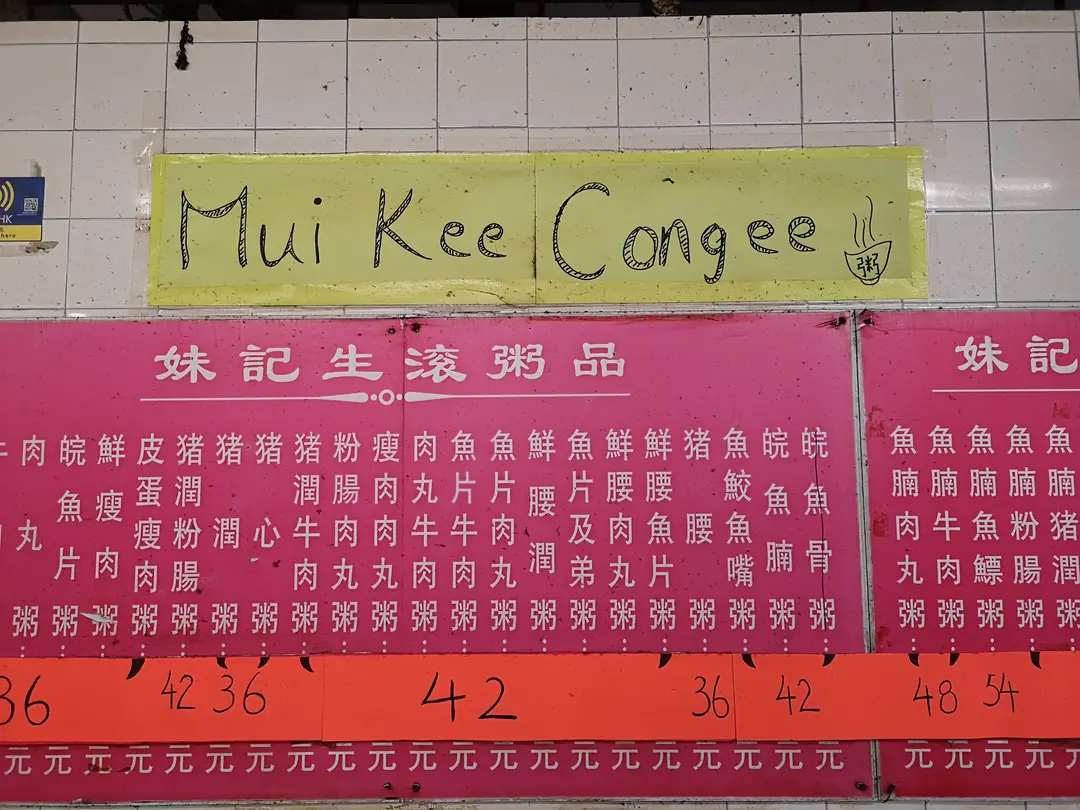 Mui Kee Congee
粥
HK
here
妹記生滚粥品
肉丸粥
皖魚片粥
鮮瘦肉粥
皮蛋瘦肉粥
猪潤粉腸粥
猪潤粥
猪心粥
猪潤牛肉粥
粉腸肉丸粥
瘦肉肉丸粥
肉丸牛肉粥
魚片牛肉粥
魚片肉丸粥
鮮腰潤粥
魚片及弟粥
鮮腰肉丸粥
鮮腰魚片粥
猪腰粥
魚鮫魚嘴粥
皖魚腩粥
皖魚骨粥
36 42 36 42 36 42
元元元元元元元元元元元元元元元元元元元元元
妹記
魚腩肉丸粥
魚腩牛肉粥
魚腩魚鰾粥
魚腩粉腸粥
魚腩猪潤粥
48 54
元元元元元